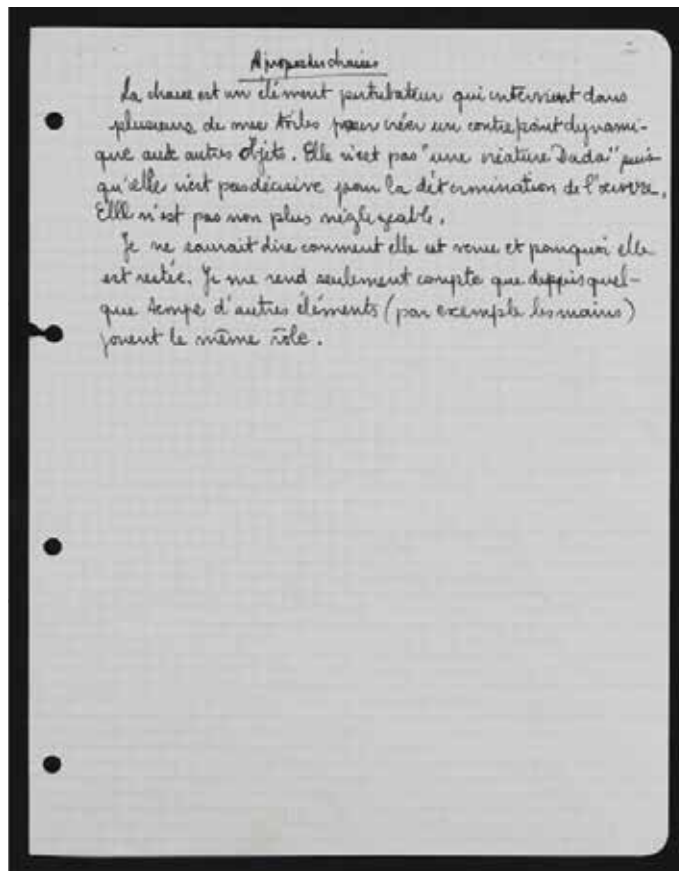 A propos des chaises
La chaise est un élément pertubateur qui intervient dans
plusieurs de mes toiles pour créer un contrepoint dynami-
que aux autres objets. Elle n'est pas "une créature Dada" puis-
qu'elle n'est pas décisive pour la détermination de l'œuvre.
Elle n'est pas non plus négligeable.
Je ne saurait dire comment elle est venue et pourquoi elle
est restée. Je me rend seulement compte que deppuis quel-
que temps d'autres éléments (par exemple les mains)
jouent le même rôle.